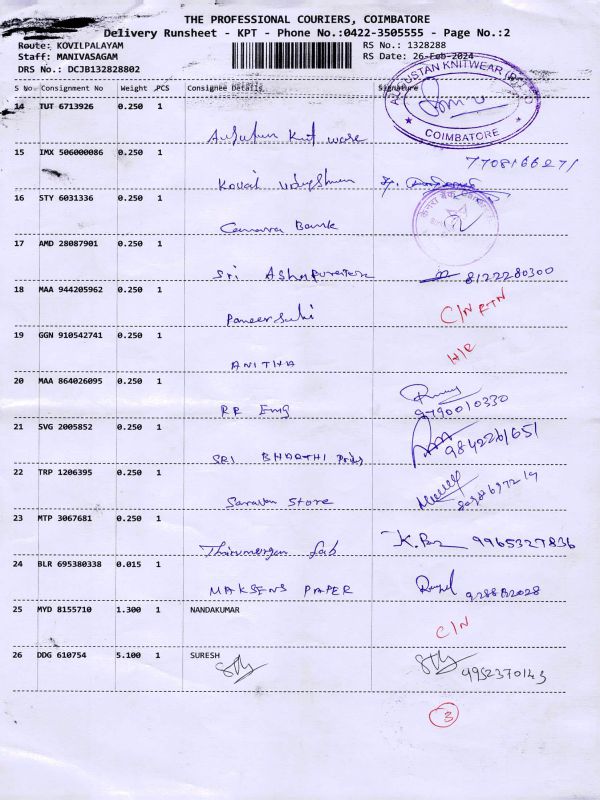 THE PROFESSIONAL COURIERS, COIMBATORE
Delivery Runsheet - KPT - Phone No.:0422-3505555 - Page No.:2
Route: KOVILPALAYAM RS No.: 1328288
Staff: MANIVASAGAM RS Date: 26-Feb-2024
DRS No.: DCJB132828802
S No Consignment No Weight PCS Consignee Details Signature
14 TUT 6713926 0.250 1
AUGUSTAN KNITWEAR
COIMBATORE
15 IMX 506000086 0.250 1
7708166271
Kovai
16 STY 6031336 0.250 1
Canara Bank
17 AMD 28087901 0.250 1
Sri 8122280300
18 MAA 944205962 0.250 1
C/N RTN
19 GGN 910542741 0.250 1
H/R
ANITHA
20 MAA 864026095 0.250 1
RR Eng 9790010330
21 SVG 2005852 0.250 1
SRI BHARTHI 9842261651
22 TRP 1206395 0.250 1
Saravan Store
23 MTP 3067681 0.250 1
Lab K. 9965327836
24 BLR 695380338 0.015 1
MAKSENS PAPER
25 MYD 8155710 1.300 1 NANDAKUMAR
C/N
26 DDG 610754 5.100 1 SURESH
4952370143
3